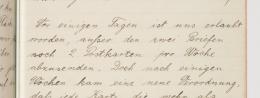 Vor einigen Tagen ist uns erlaubt
worden, außer den zwei Briefen
noch 2 Postkarten pro Woche
abzusenden. Doch nach einigen
Wochen kam eine neue Verordnung,
daß jede Karte, die mehr als